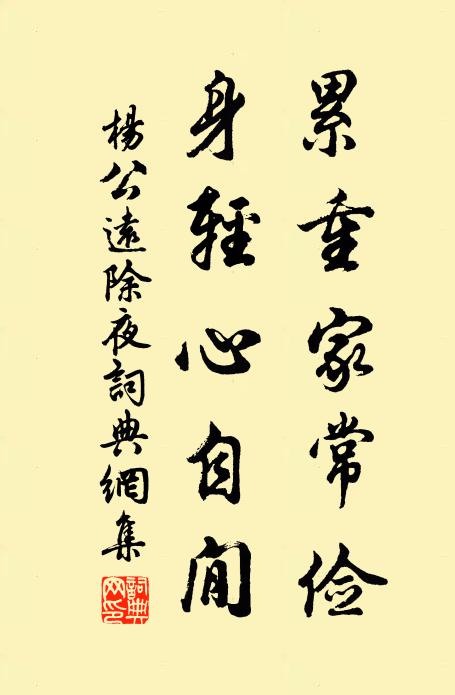 累重家常俭
身輕心自閒
楊公遠除夜詞典網集
詞典網印